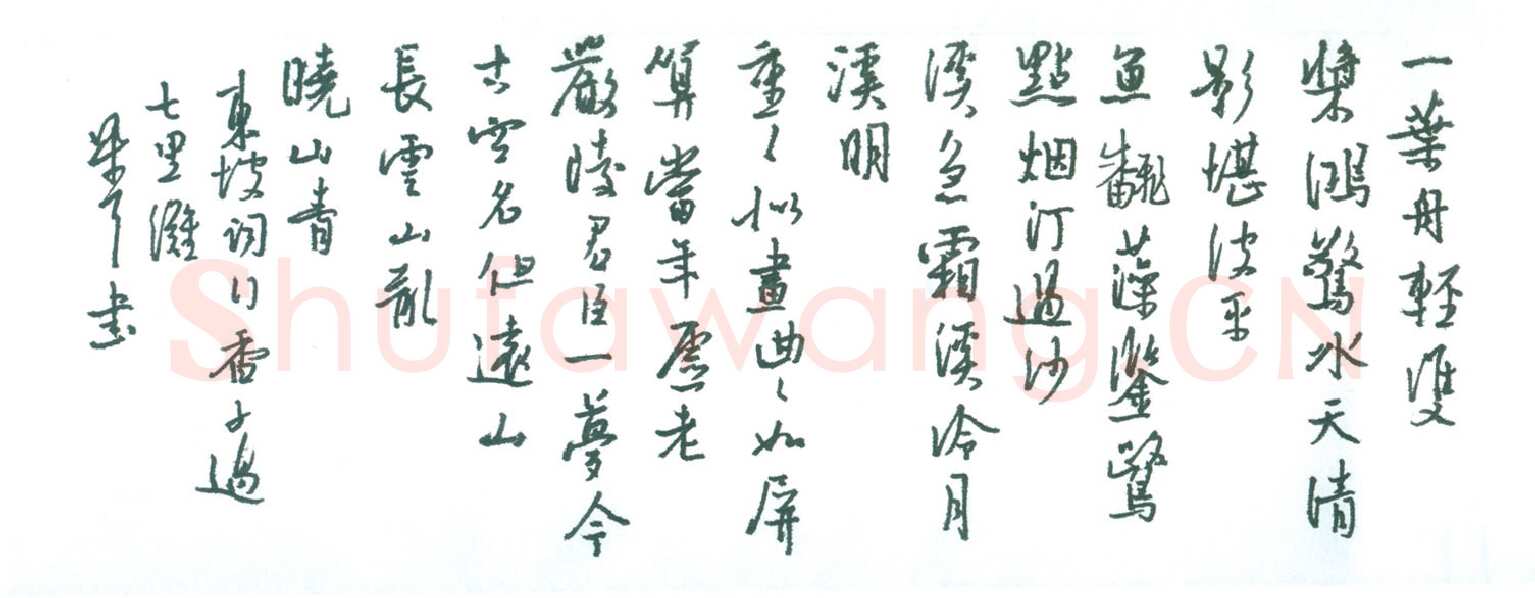 一葉舟輕雙
槳鴻驚水天清
影堪波平
魚翻藻鑒鷺
點烟汀過沙
溪急霜溪冷月
溪明
重々似畫曲々如屏
算當年虛老
嚴陵君臣一夢今
古空名但遠山
長雲山亂
曉山青
東坡詞行香子過
七里灘
書
Shufawang.CN